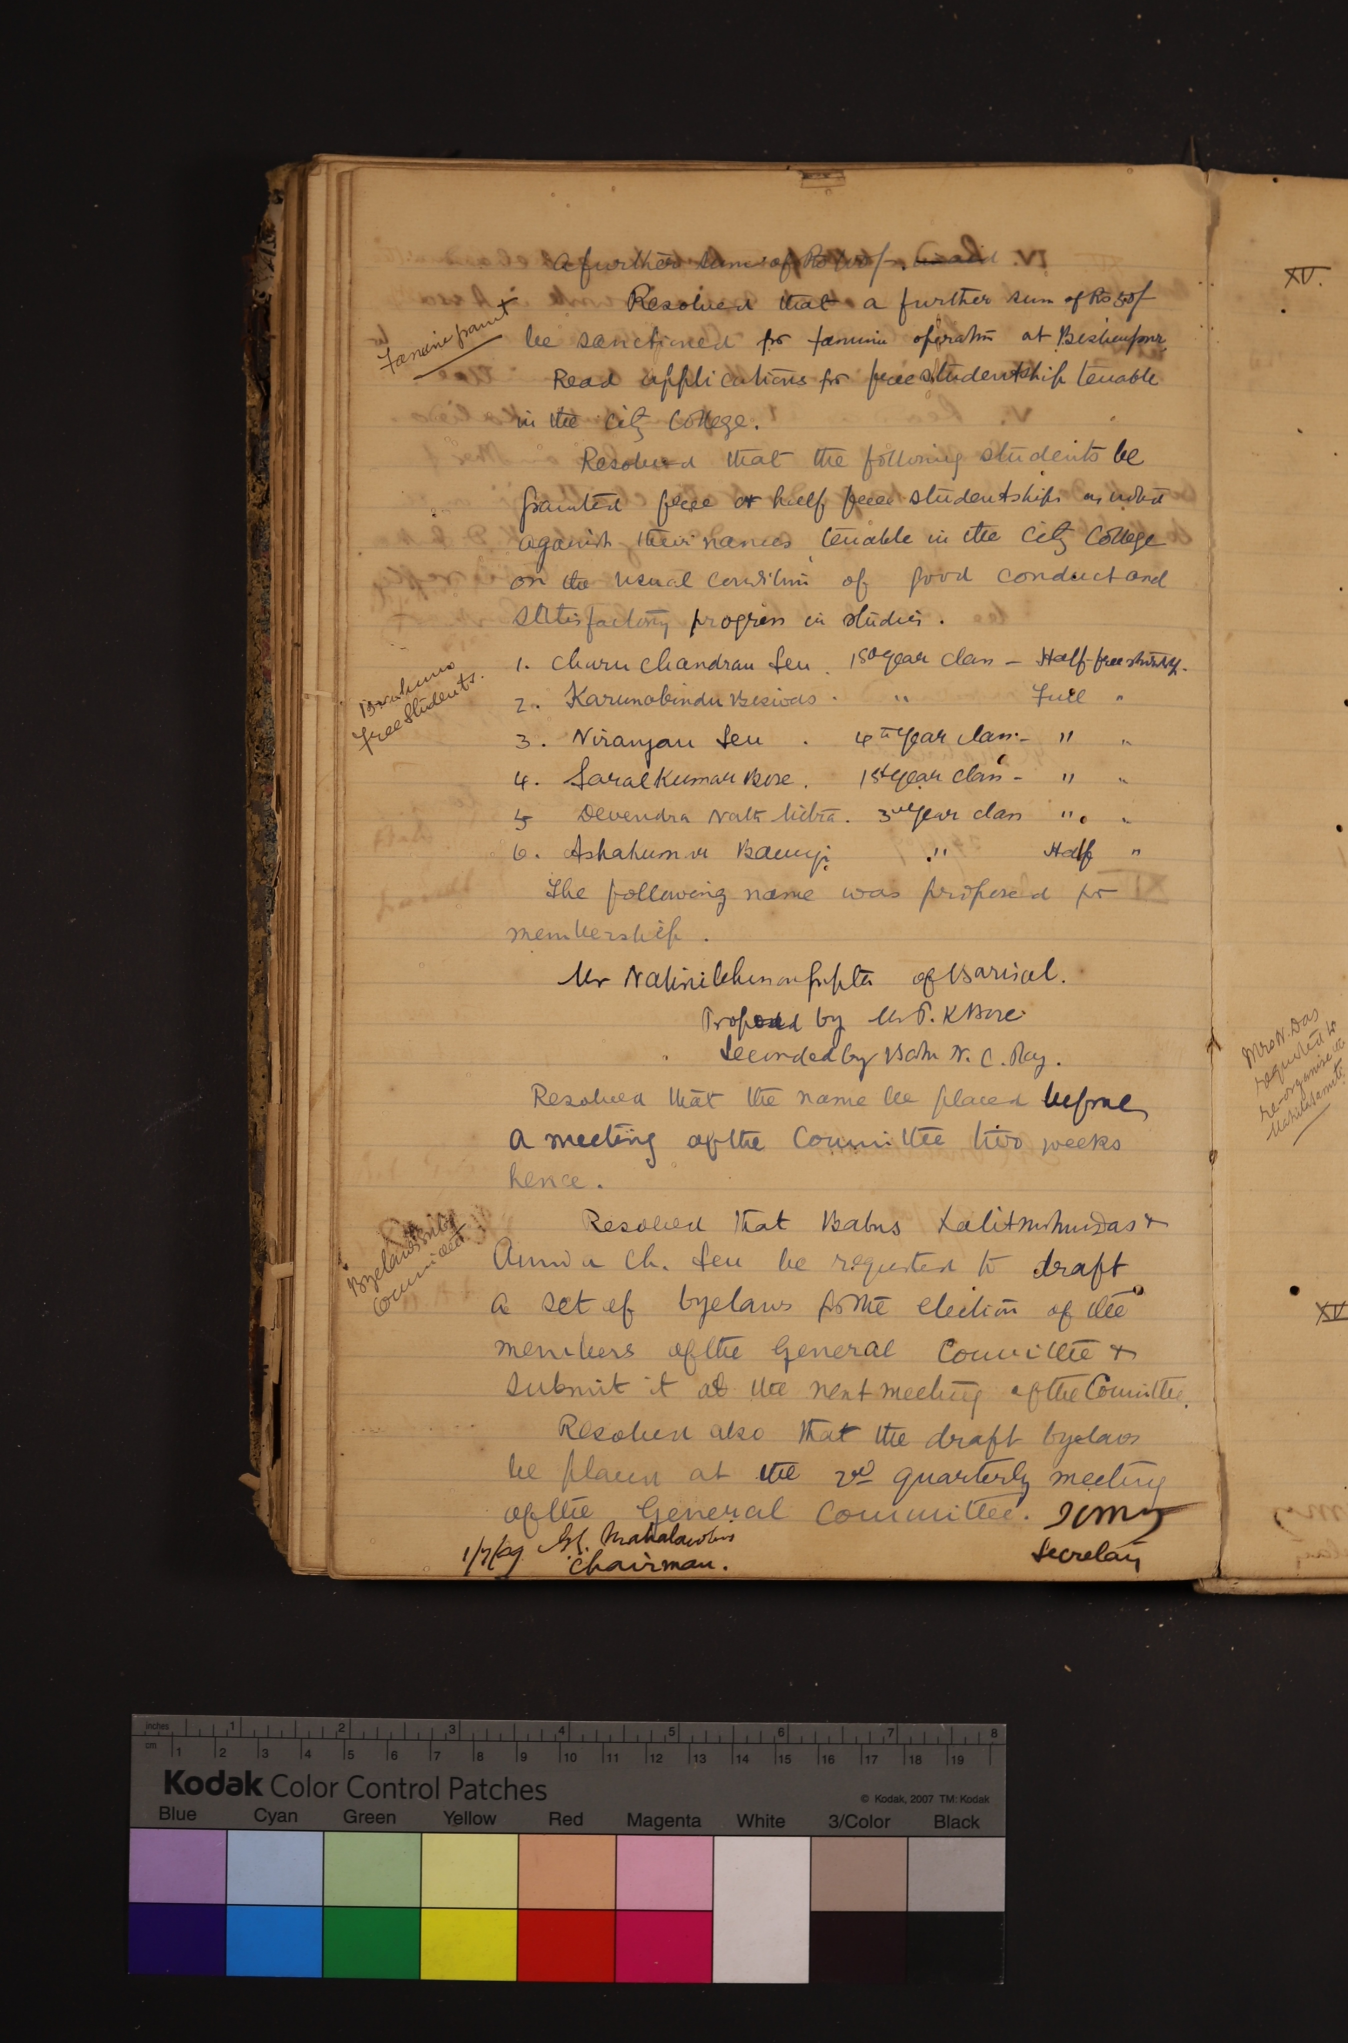 a further sum of Rs
Famine grant
Resolved that a further sum of Rs 50/-
be sanctioned for famine operation at Bishenpur.
Read applications for free studentship tenable
in the City College.
Resolved that the following students be
granted free or half free studentships as noted
against their names tenable in the City College
on the usual condition of good conduct and
satisfactory progress in studies.
Brahmo
free students.
1. Charu Chandran Sen. 1st year class - Half-free
2. Karunabindu Biswas. " Full "
3. Niranjan Sen. 4th year class - " "
4. Saral Kumar Bose. 1st year class - " "
5 Devendra Nath Mitra. 3rd year class " "
6. Ashakumar Banerji " Half "
The following name was proposed for
membership.
Mr Gupta of Barisal.
Proposed by Mr P. K Bose
Seconded by Babu N. C. Ray.
Resolved that the name be placed before
a meeting of the Committee two weeks
hence.
Byelaws
Committee
Resolved that Babus Lalitmohun Das &
Ch. Sen be requested to draft
a set of byelaws for the election of the
members of the General Committee &
submit it at the next meeting of the Committee.
Resolved also that the draft byelaws
be placed at the 2nd quarterly meeting
of the General Committee.
1/7/09 Mahalanobis
Chairman.
Secretary
XV.
Mrs N. Das
requested to
re-organise the
Mahila Samiti
XV
inches 1 2 3 4 5 6 7 8
cm 1 2 3 4 5 6 7 8 9 10 11 12 13 14 15 16 17 18 19
Kodak Color Control Patches
© Kodak, 2007 TM: Kodak
Blue Cyan Green Yellow Red Magenta White 3/Color Black